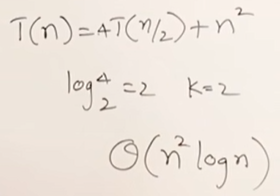 T(n)=4T(n/2)+n²
log₂⁴=2 K=2
Θ(n² logn)